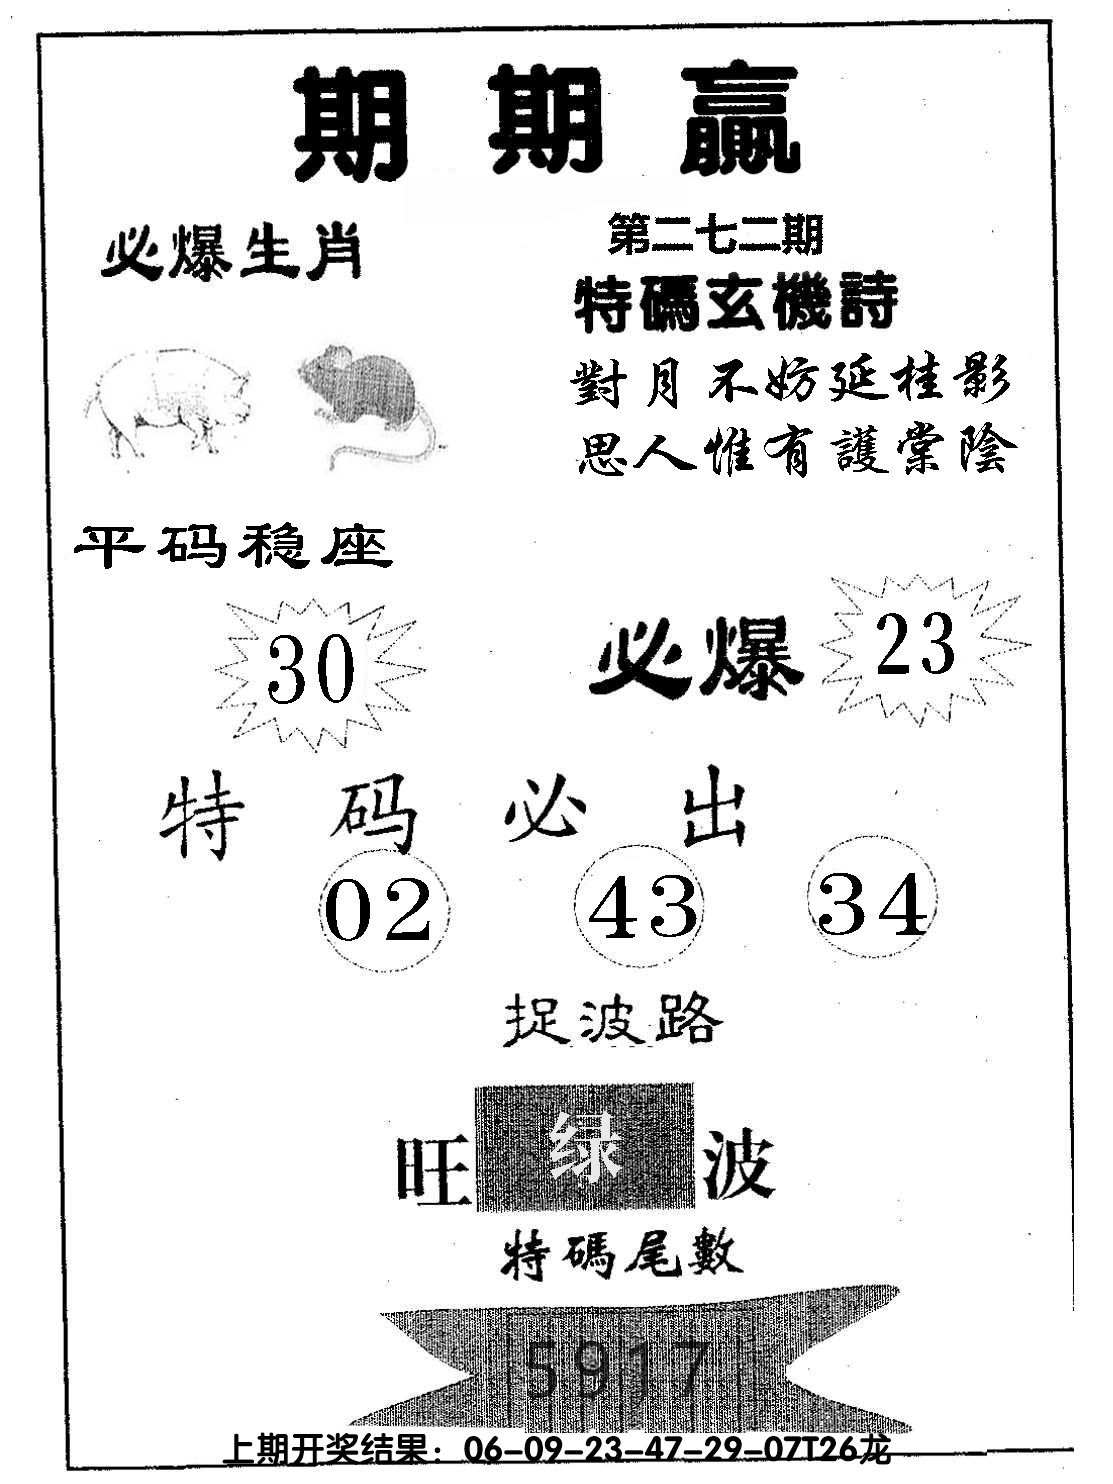 期期贏
必爆生肖
第二七二期
特碼玄機詩
對月不妨延桂影
思人惟有護棠陰
平码稳座
30
必爆
23
特码必出
02 43 34
捉波路
旺绿波
特碼尾數
5917
上期开奖结果：06-09-23-47-29-07T26龙